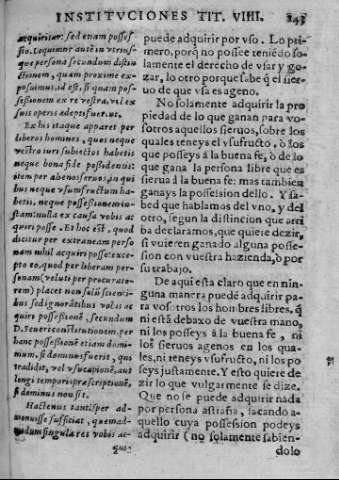 INSTITVCIONES TIT. VIIII. 243
acquiritur: sed etiam possessio. Loquimur autē in vtrius
que persona secundum distin
ctionem, quam proxime ex-
posuimus, id est, si quam pos-
sessionem ex re vestra, vel ex
suis operis adepti fuerūt.
Ex his itaque apparet per
liberos homines, quos neque
vestro iuri subiectos habetis
neque bona fide possidetis:
item per alienos seruos, in qui
bus neque vsumfructum ha-
betis, neque possessionem iu-
stam: nulla ex causa vobis ac
quiri posse. Et hoc est, quod
dicitur per extraneam perso
nam nihil acquiri posse: exce-
pto eo, quod per liberam per-
sonam (veluti per procurato-
rem) placet non solū scienti-
bus sed ignorātibus vobis ac-
quiri possessionē, secundum
D. Seueri cōnstitutionem. per
hanc possessionē etiam domi
nium, si dominus fuerit, qui
tradidit, vel vsucapionē, aut
longi temporis præscriptionē,
si dominus non sit.
Hactenus tantisper ad-
monuisse sufficiat, quemad-
modum singulares vobis ac-
que
puede adquirir por vso. Lo pri-
mero, porq̄ no possee teniēdo so-
lamente el derecho de vsar y go-
zar, lo otro porque sabe q̄ el sier-
uo de que vsa es ageno.
No solamente adquirir la pro
piedad de lo que ganan para vo-
sotros aquellos sieruos, sobre los
quales teneys el vsufructo, ò los
que posseys á la buena fe, ò de lo
que gana la persona libre que es
sierua á la buena fe: mas tambien
ganays la possession dello. Y sa-
bed que hablamos del vno, y del
otro, segun la distincion que arri
ba declaramos, que quiere dezir,
si vuieren ganado alguna posse-
sion con vuestra hazienda, ò por
su trabajo.
De aqui esta claro que en nin-
guna manera puede adquirir pa-
ra vosotros los hombres libres, q̄
ni está debaxo de vuestra mano,
ni los posseys à la buena fe, ni
los sieruos agenos en los qua-
les, ni teneys vsufructo, ni los po
seys justamente. Y esto quiere de-
zir lo que vulgarmente se dize.
Que no se puede adquirir nada
por persona estraña, sacando a-
quello cuya possession podeys
adquirir (no solamente sabien-
dolo